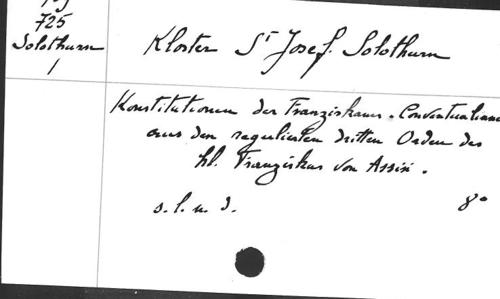 725
Solothurn
1
Kloster St Josef. Solothurn
Konstitutionen der Franziskaner-Conventualinnen
aus den regulierten dritten Orden des
hl. Franziskus von Assisi.
s. l. u. d. 8°